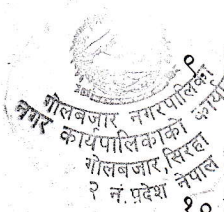 गोलबजार नगरपालिका
नगर कार्यपालिकाको कार्या
गोलबजार, सिरहा
२ नं. प्रदेश नेपाल